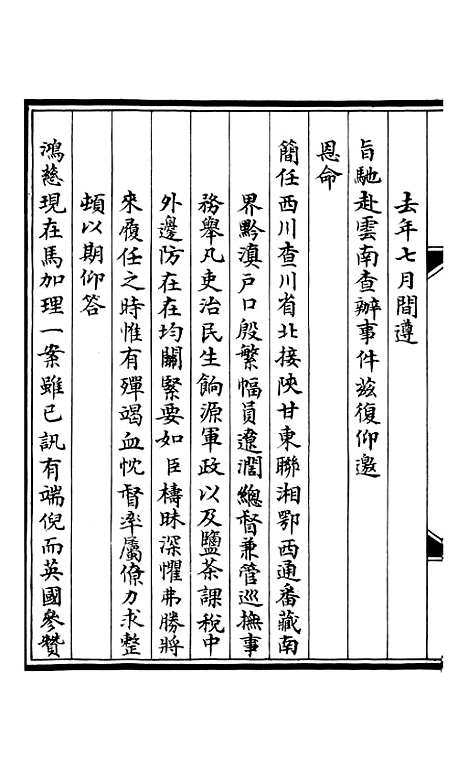 去年七月間遵
旨馳赴雲南查辦事件茲復仰邀
恩命
簡任四川查川省北接陝甘東聯湘鄂西通番藏南
界黔滇戶口殷繁幅員遼濶總督兼管巡撫事
務舉凡吏治民生餉源軍政以及鹽茶課稅中
外邊防在在均關緊要如臣檮昧深懼弗勝將
來履任之時惟有殫竭血忱督率屬僚力求整
頓以期仰答
鴻慈現在馬加理一案雖已訊有端倪而英國參贊